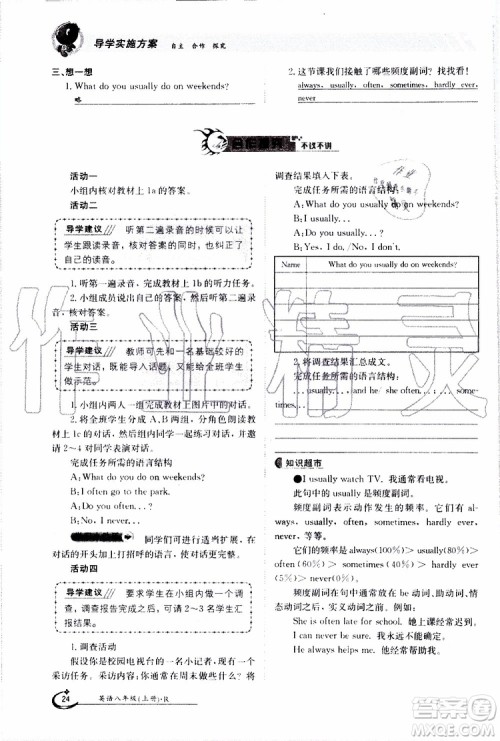 导学实施方案 自主 合作 探究
三、想一想
1. What do you usually do on weekends?
略
2. 这节课我们接触了哪些频度副词? 找找看!
always, usually, often, sometimes, hardly ever,
never
不议不讲
活动一
小组内核对教材上 1a 的答案。
活动二
导学建议 听第二遍录音的时候可以让
学生跟读录音，核对答案的同时可以纠正
自己的读音。
1. 听第一遍录音，完成教材上 1b 的听力任务。
2. 小组成员说出自己的答案，然后听第二遍录
音，核对答案。
活动三
导学建议 教师可先和一名基础较好的
学生对话，然后让学生操练，给全班学生
做示范。
1. 小组内两人一组完成教材上图片中的对话。
2. 将全班学生分为 A、B 两部分，分角色朗读
对话，并邀请 2~4 对同学进行对话。
完成任务所需的语言结构
A: What do you usually do on weekends?
B: I often go to the park.
A: Do you often ...?
B: No, I never...
同学们可进行适当扩展，在
对话的开头加上打招呼的语言，完善对话。
活动四
导学建议 要求学生在组内完成调查
后，写调查报告完成 2~3 名学生汇
报结果。
假设你是校园电视台的一名小记者，现有一个
采访任务：采访班上的同学周末通常做什么，并将
调查结果填入下表。
完成任务所需的语言结构：
A: What do you usually do on weekends?
B: I usually. . .
A: Do you. . . ?
B: Yes, I do. /No, I don't.
Name What do you usually do on weekends?
2. 将调查结果汇总成文。
完成任务所需的语言结构：
usually . . . and he is
知识超市
●I usually watch TV. 我通常看电视。
此句中的 usually 是频度副词。
频度副词表示动作发生的频率。我们常见的
有: always, usually, often, sometimes, hardly ever,
never 等。
它们的频率是：always(100%)＞usually(80%)＞
often(60%)＞sometimes(40%)＞hardly ever
(20%)＞never(0%)
频度副词在句中通常放在 be 动词、助动词、情
态动词之后，实义动词之前。例如:
She is often late for school. 她上学经常迟到。
I can never say. 我很难说。
He always helps me. 他总是帮助我。
24 英语八年级(上册)·R